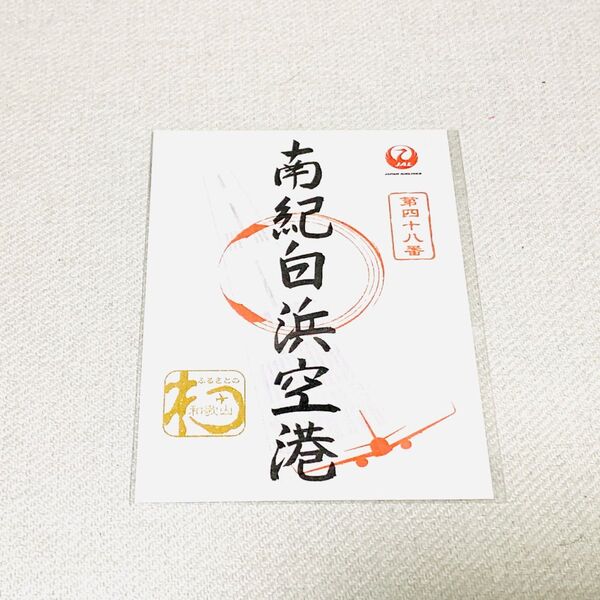 JAL
JAPAN AIRLINES
第四十八番
南紀白浜空港
ふるさとの
和歌山